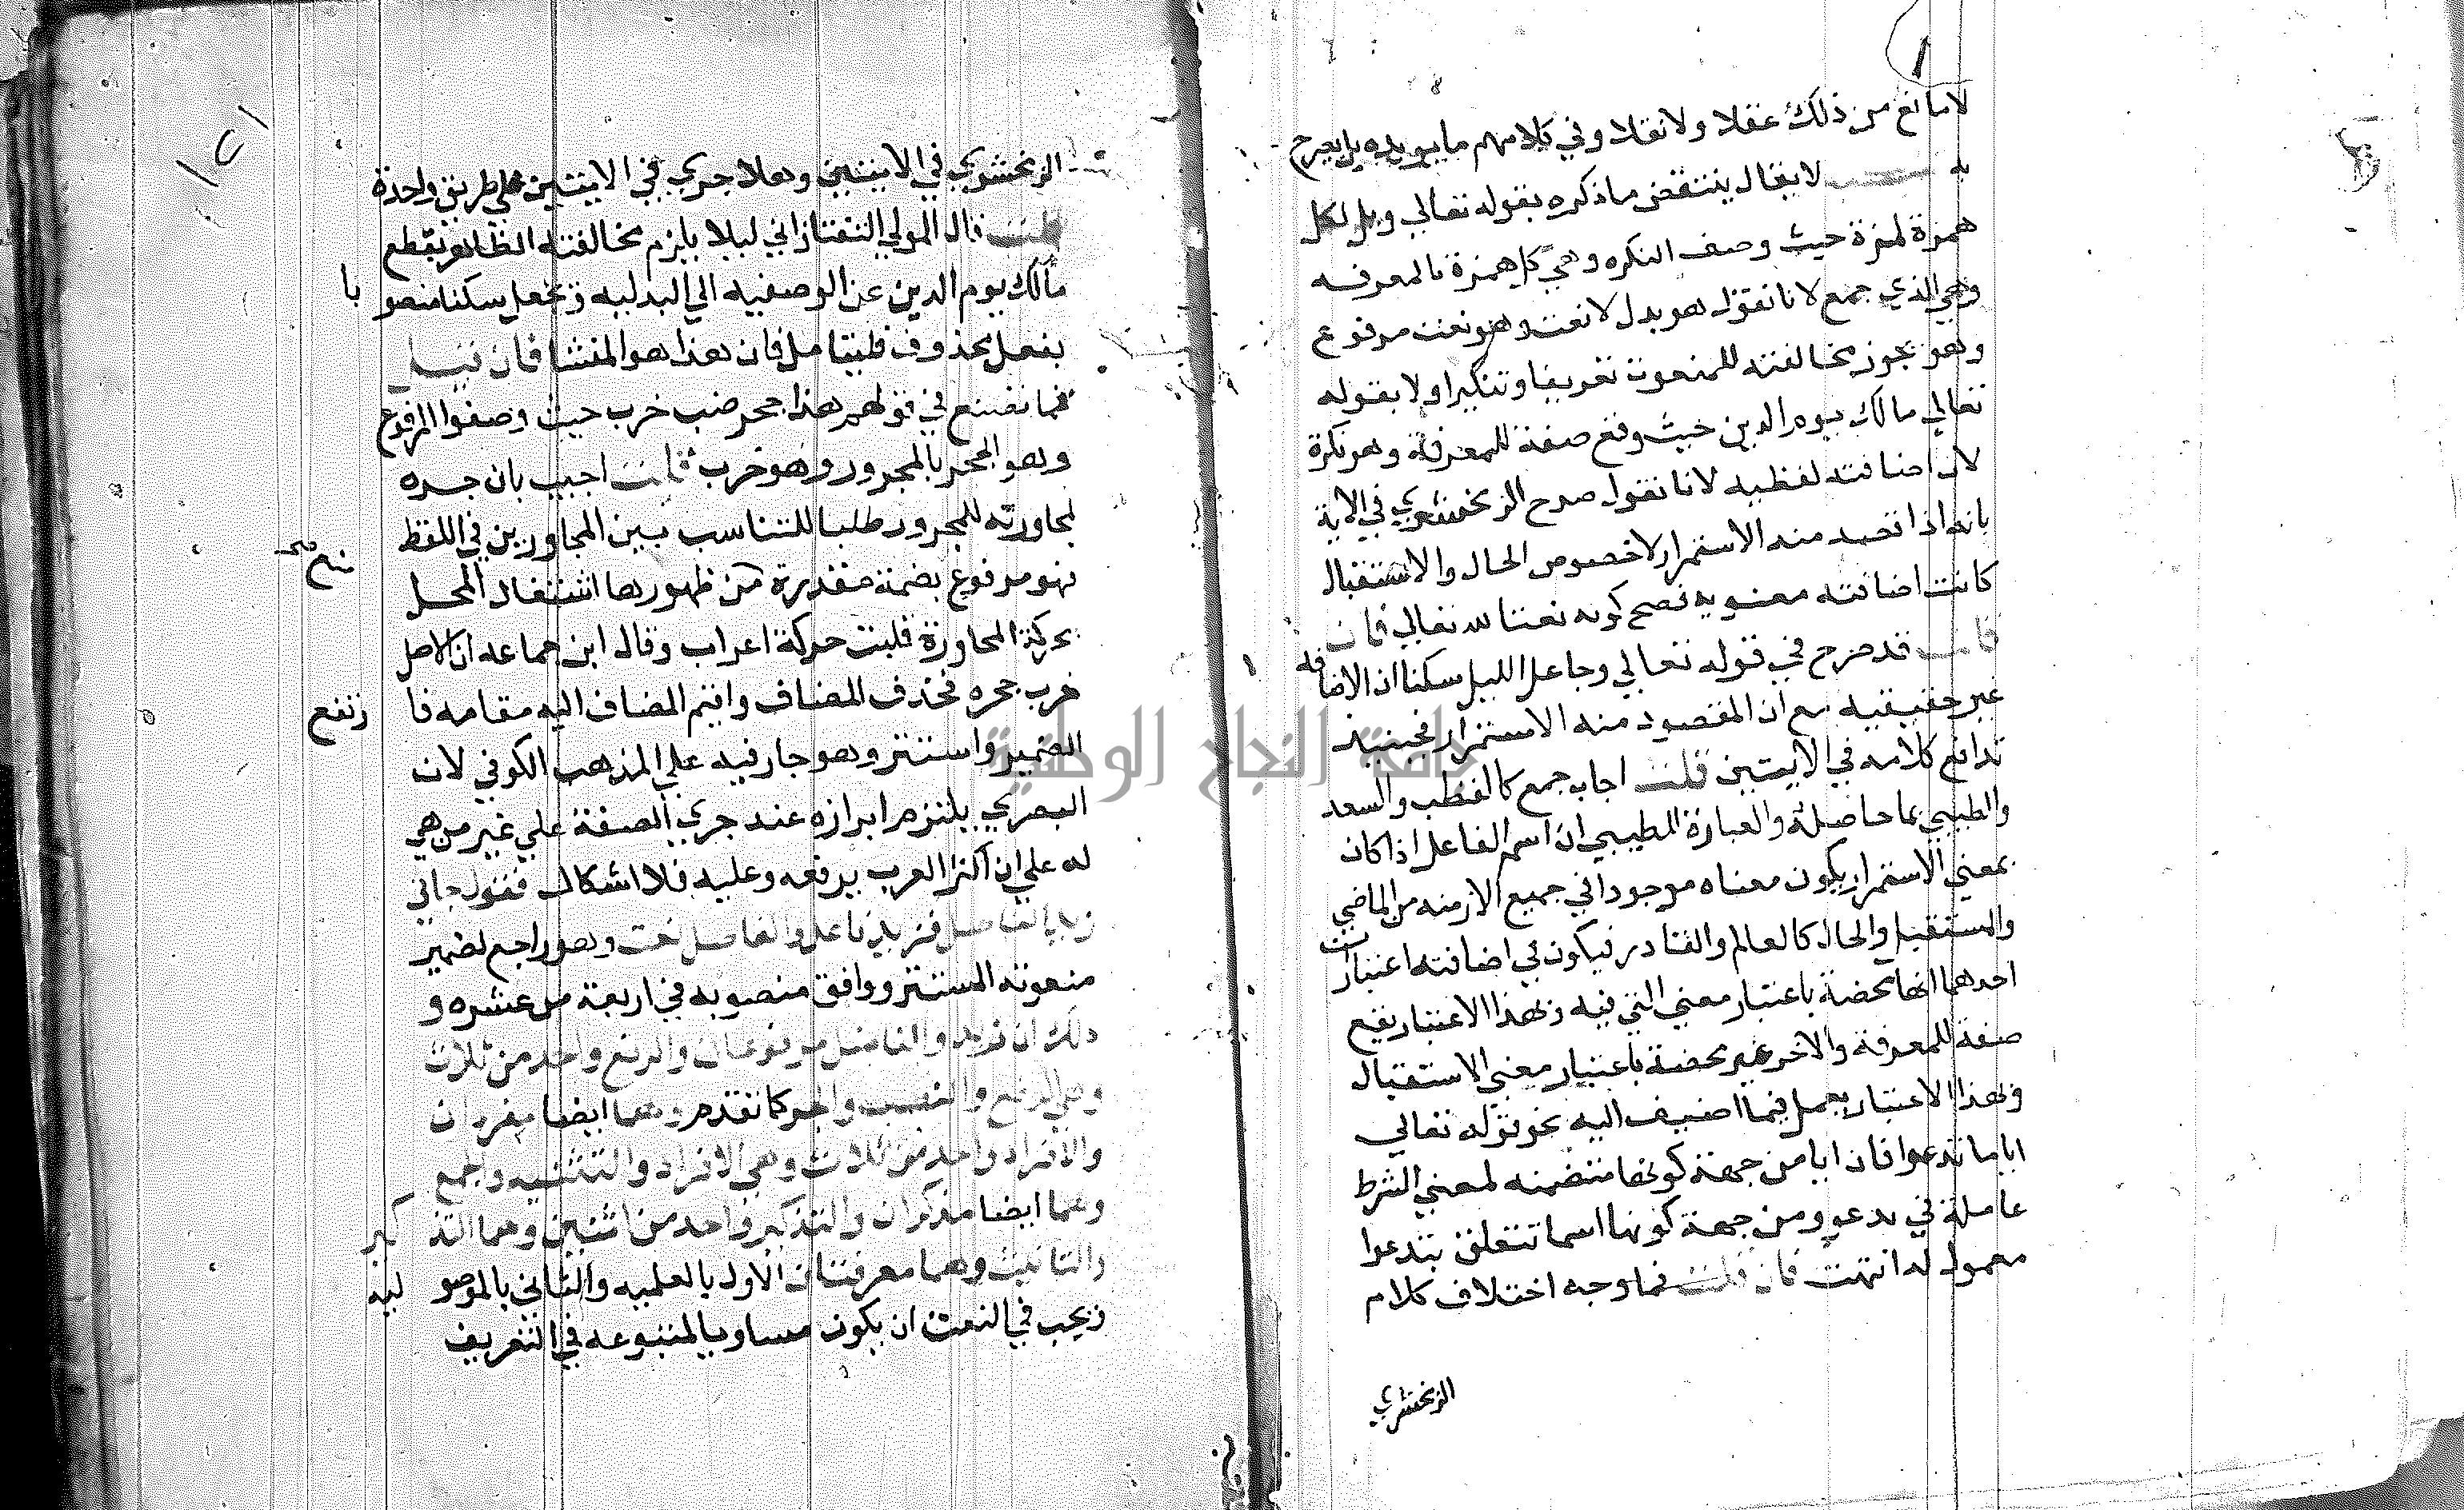 لا مانع من ذلك عقلا ولا نقلا وفي كلامهم ما يويده بل يصرح
به لا يقال ينتقض ما ذكره بقوله تعالي ويل لكل
همزة لمزة حيث وصف النكره وهي كل همزة بالمعرفه
وهي الذي جمع لانا نقول هو بدل لا نعت وهو نعت مرفوع
وهو يجوز مخالفته للمنعوت تعريفا وتنكيرا ولا بقوله
تعالي مالك يوم الدين حيث وقع صفة للمعرفة وهو نكرة
لان اضافته لفظيه لانا نقول صرح الزمخشري في الاية
بانه اذا قصد منه الاستمرار لا خصوص الحال والاستقبال
كانت اضافته معنويه فصح كونه نعتا لله تعالي فان
قلت قد صرح في قوله تعالي وجاعل الليل سكنا ان الاضافه
غير حقيقيه مع ان المقصود منه الاستمرار فحينيذ
تدافع كلامه في الايتين قلت اجاب جمع كالقطب والسعد
والطيبي بما حاصله والعبارة للطيبي ان اسم الفاعل اذا كان
بمعني الاستمرار يكون معناه موجودا في جميع الازمنه من الماضي
والمستقبل والحال كالعالم والقادر فيكون في اضافته اعتباران
احدهما انها محضة باعتبار معني المضي فيه وبهذا الاعتبار يقع
صفة للمعرفة والاخر غير محضة باعتبار معني الاستقبال
وبهذا الاعتبار يعمل فيما اضيف اليه نحو قوله تعالي
ايا ما تدعوا فان ايا من جهة كونها متضمنه لمعني الشرط
عاملة في تدعو ومن جهة كونها اسما تتعلق بتدعوا
معمول له انتهت فان قلت فما وجه اختلاف كلام
الزمخشري
الزمخشري في الايتين وهلا جري في الايتين علي طريق واحدة
قلت قال المولي التفتازاني ليلا يلزم مخالفته الظاهر بقطع
مالك يوم الدين عن الوصفيه الي البدليه وبجعل سكنا منصوبا
بفعل محذوف فليتامل فان هذا هو المنشا فان قيل
فما نصنع في قولهم هذا جحر ضب خرب حيث وصفوا المرفوع
وهو الجحر بالمجرور وهو خرب قلت اجيب بان جره
لمجاورته للمجرور طلبا للتناسب بين المجاورين في اللفظ
فهو مرفوع بضمة مقدرة من ظهورها اشتغال المحل
بحركة المجاورة فليت حركة اعراب وقال ابن جماعه ان الاصل
خرب جحره فحذف المضاف واقيم المضاف اليه مقامه فارتفع
الضمير واستتر وهو جار فيه علي المذهب الكوفي لان
البصري يلتزم ابرازه عند جري الصفة علي غير من هي
له علي ان اكثر العرب يرفعه وعليه فلا اشكال فقول جاني
زيد الفاضل فزيد فاعل والفاضل نعت وهو راجع لضمير
منعوته المستتر ووافق منصوبه في اربعة من عشره و
ذلك ان زيد والفاضل مرفوعان والرفع واحد من ثلاث
وهي الرفع والنصب والجر كما تقدم وهما ايضا مفردان
والافراد واحد من ثلاث وهي الافراد والتثنيه والجمع
وهما ايضا مذكران والتذكير واحد من اثنين وهما التذكير
والتانيث وهما معرفتان الاول بالعلميه والثاني بالموصوليه
ويجب في النعت ان يكون مساويا لمتبوعه في التعريف
جامعة النجاح الوطنية